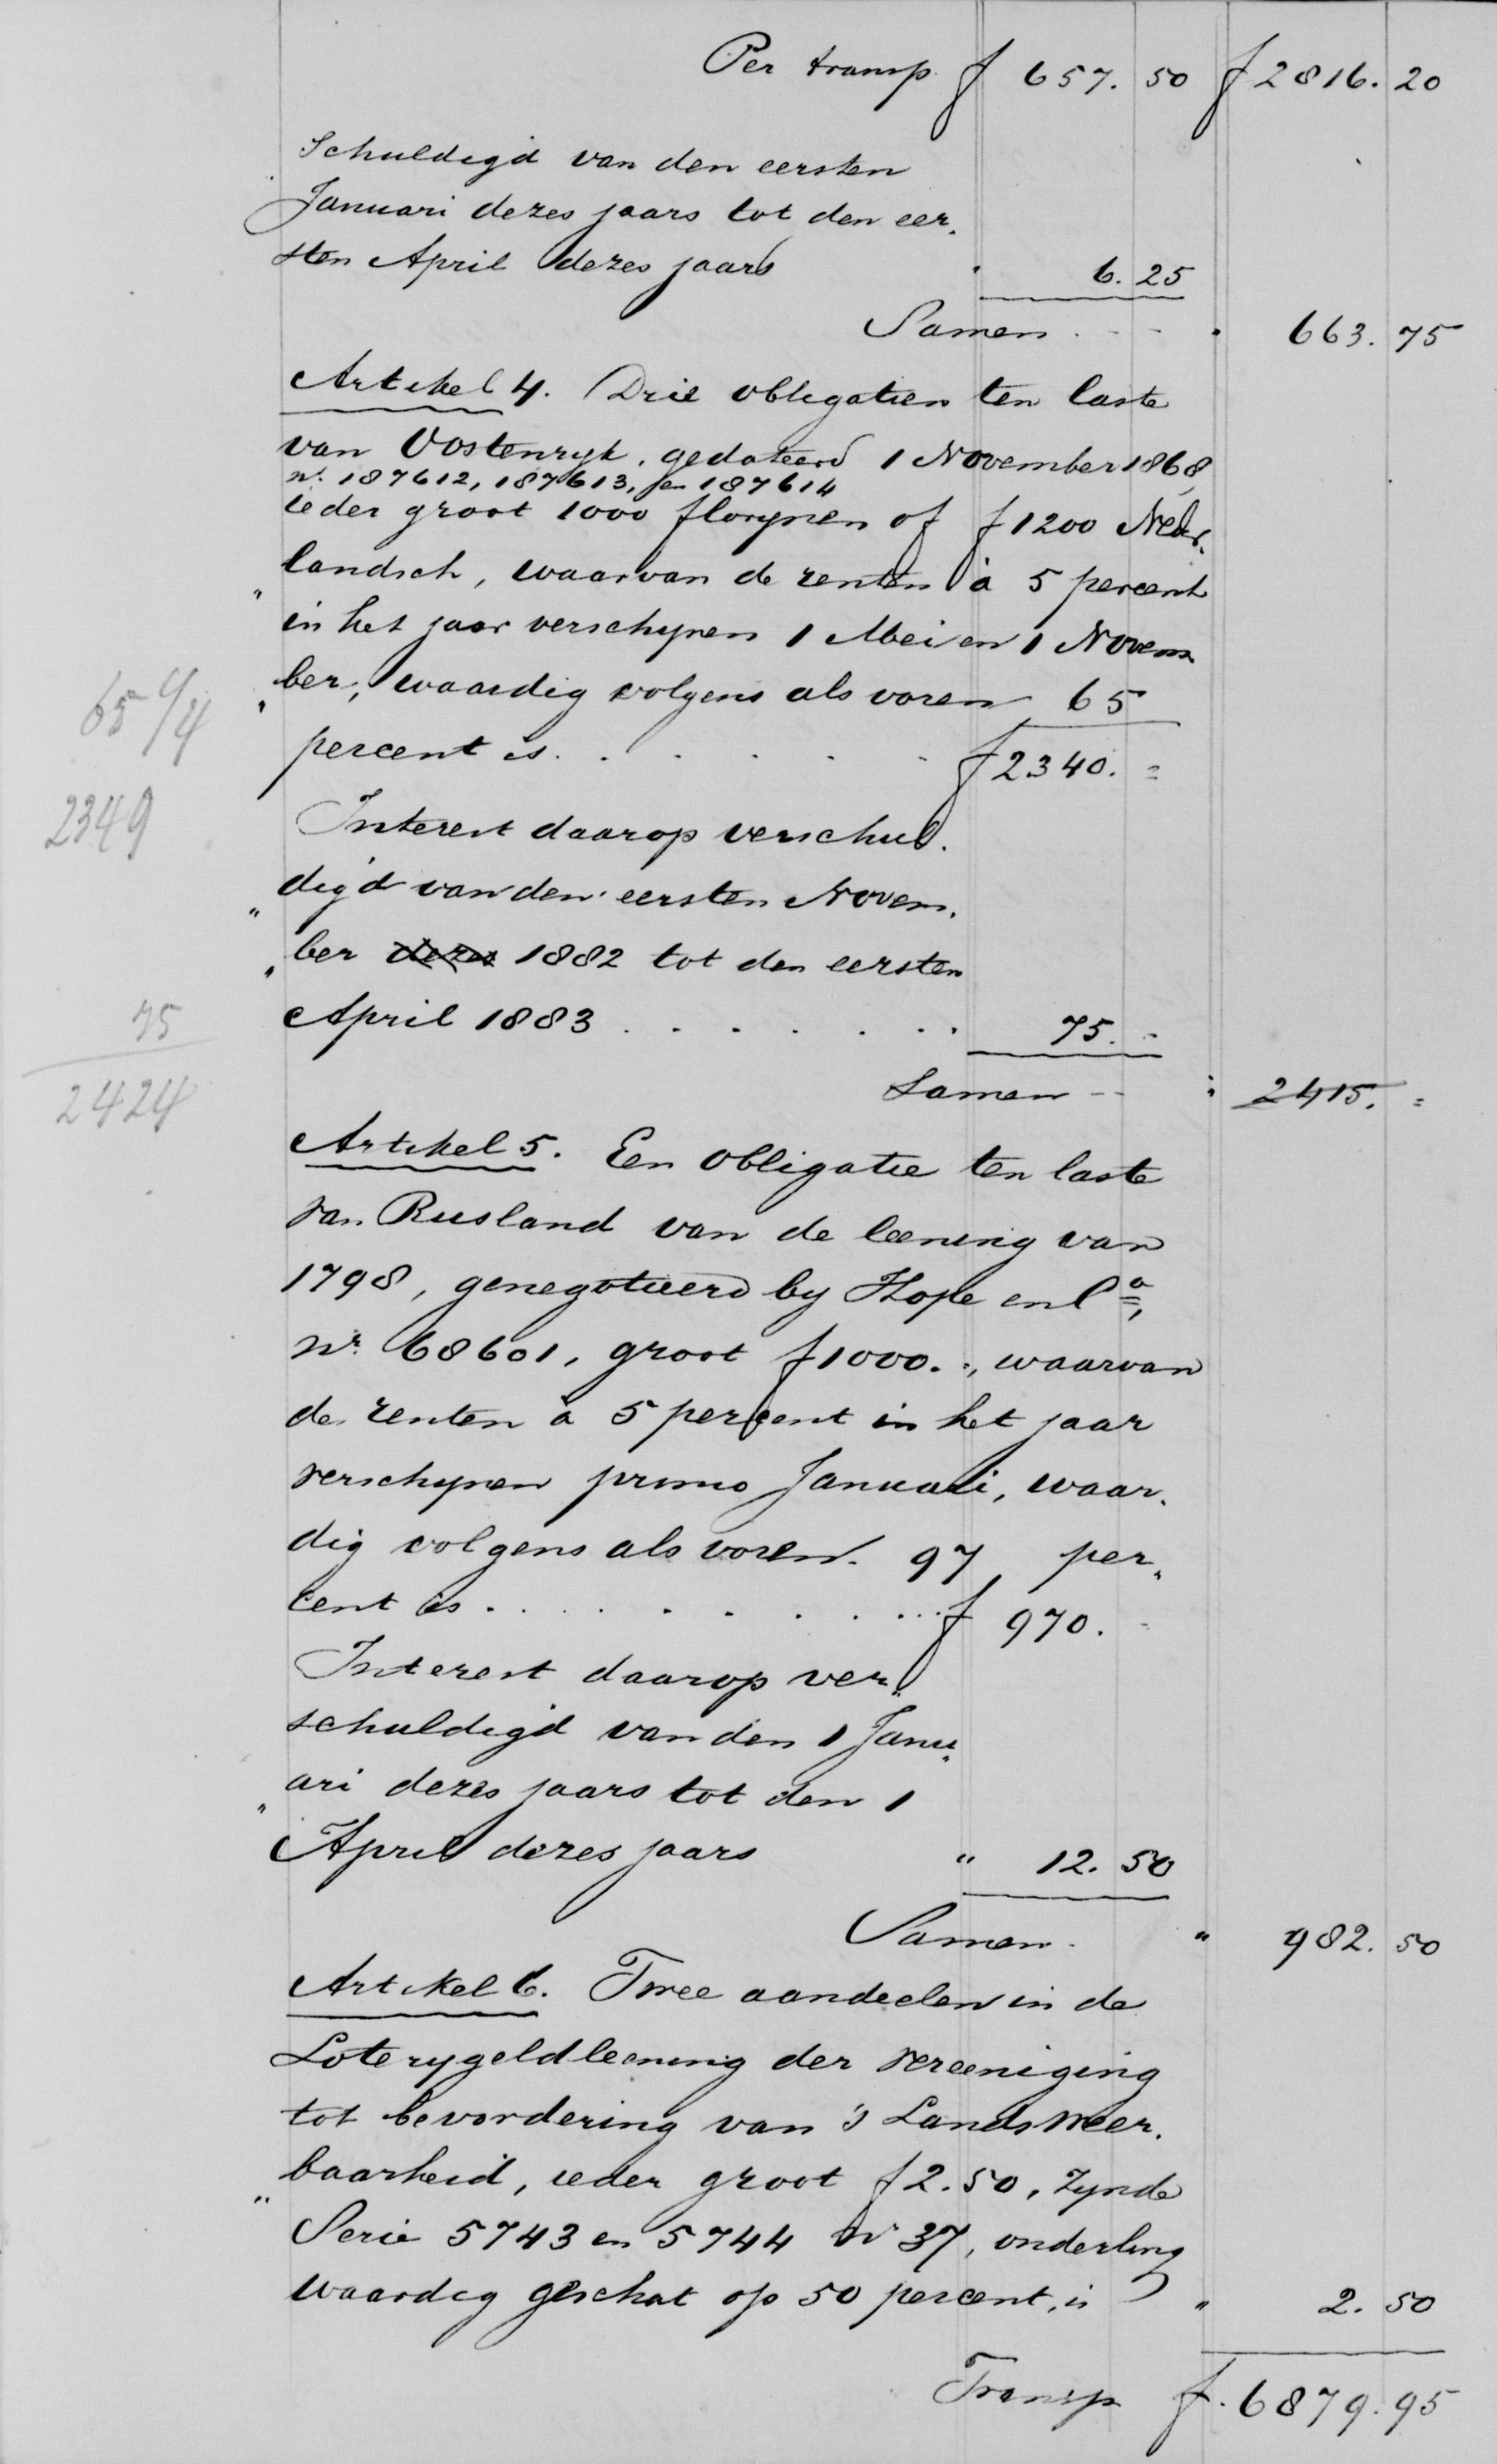 Per transp f 657. 50 f 2816. 20
Schuldigd van den eersten
Januari dezes jaars tot den eer„
sten April dezes jaars " 6. 25
Samen - - - " 663. 75
Artikel 4. Drie obligatien ten laste
van Oostenryk, gedateerd 1 November 1868,
nr. 187612, 187613, en 187614
ieder groot 1000 florynen of f 1200 Neder„
„landsch, waarvan de renten à 5 percent
in het jaar verschynen 1 Mei en 1 Novem„
„ber, waardig volgens als voren 65
percent is. . . . . . f 2340. =
65 1/4
2349
Interest daarop verschul„
„digd van den eersten Novem„
„ber dezes 1882 tot den eersten
April 1883 . . . . . . . 75. -
75
2424
Samen -- " 2415. =
Artikel 5. Een obligatie ten laste
van Rusland van de leening van
1798, genegotieerd by Hope en Co,
nr. 68601, groot f 1000. =, waarvan
de renten à 5 percent in het jaar
verschynen primo Januari, waar„
dig volgens als voren 97 per„
cent is . . . . . . . . . f 970. -
Interest daarop ver„
schuldigd van den 1 Janu„
„ari dezes jaars tot den 1
April dezes jaars " 12. 50
Samen " 982. 50
Artikel 6. Twee aandeelen in de
Loterygeldleening der vereeniging
tot bevordering van 's Lands weer„
„baarheid, ieder groot f 2.50, zynde
Serie 5743 en 5744 nr 37, onderling
waardig geschat op 50 percent, is " 2. 50
Transp f. 6879. 95